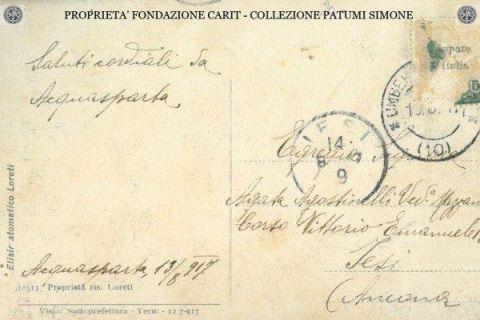 PROPRIETA' FONDAZIONE CARIT - COLLEZIONE PATUMI SIMONE
Saluti cordiali da
Acquasparta
Acquasparta, 13/8 917
* Elisir stomatico Loreti *
Proprietà ris. Loreti
Visto: Sottoprefettura - Terni - 12-7-917
JESI
14
9
(10)
Italia
Egregia
Agata Agostinelli Ved.ª
Corso Vittorio Emanuele
Jesi
(Ancona)